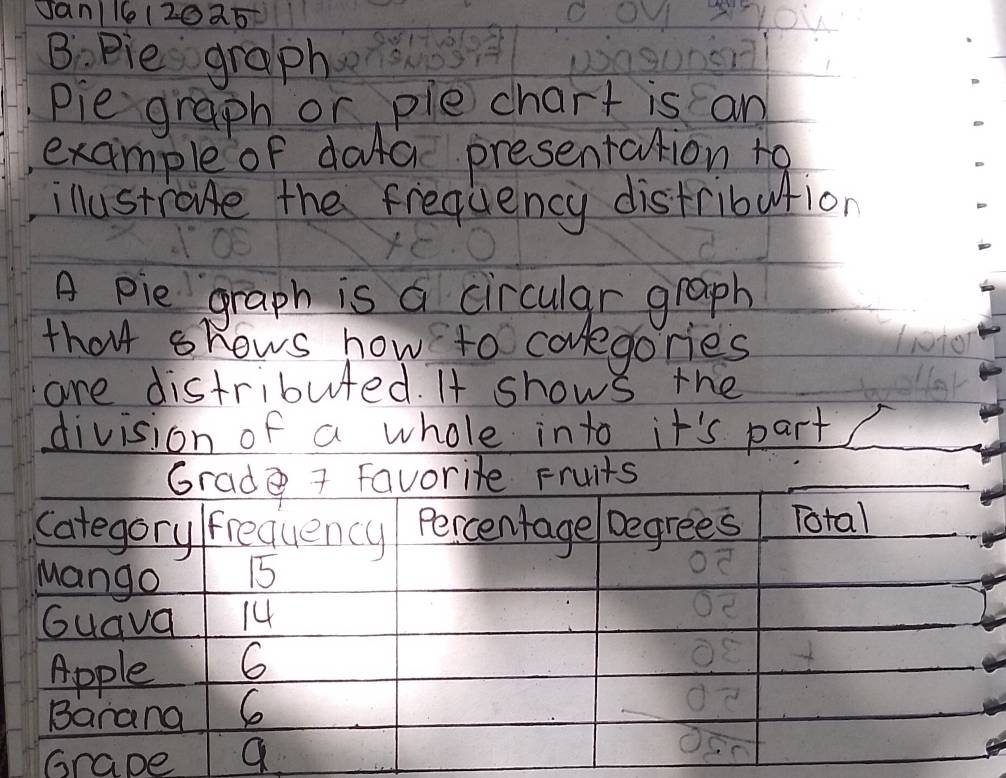 Jan 116 12025
B. Pie graph
Pie graph or pie chart is an
example of data presentation to
illustrate the frequency distribution
A pie graph is a circular graph
that shows how to categories
are distributed. It shows the
division of a whole into it's part
Grade 7 Favorite Fruits
Category Frequency Percentage Degrees Total
Mango 15
Guava 14
Apple 6
Banana 6
Grape 9